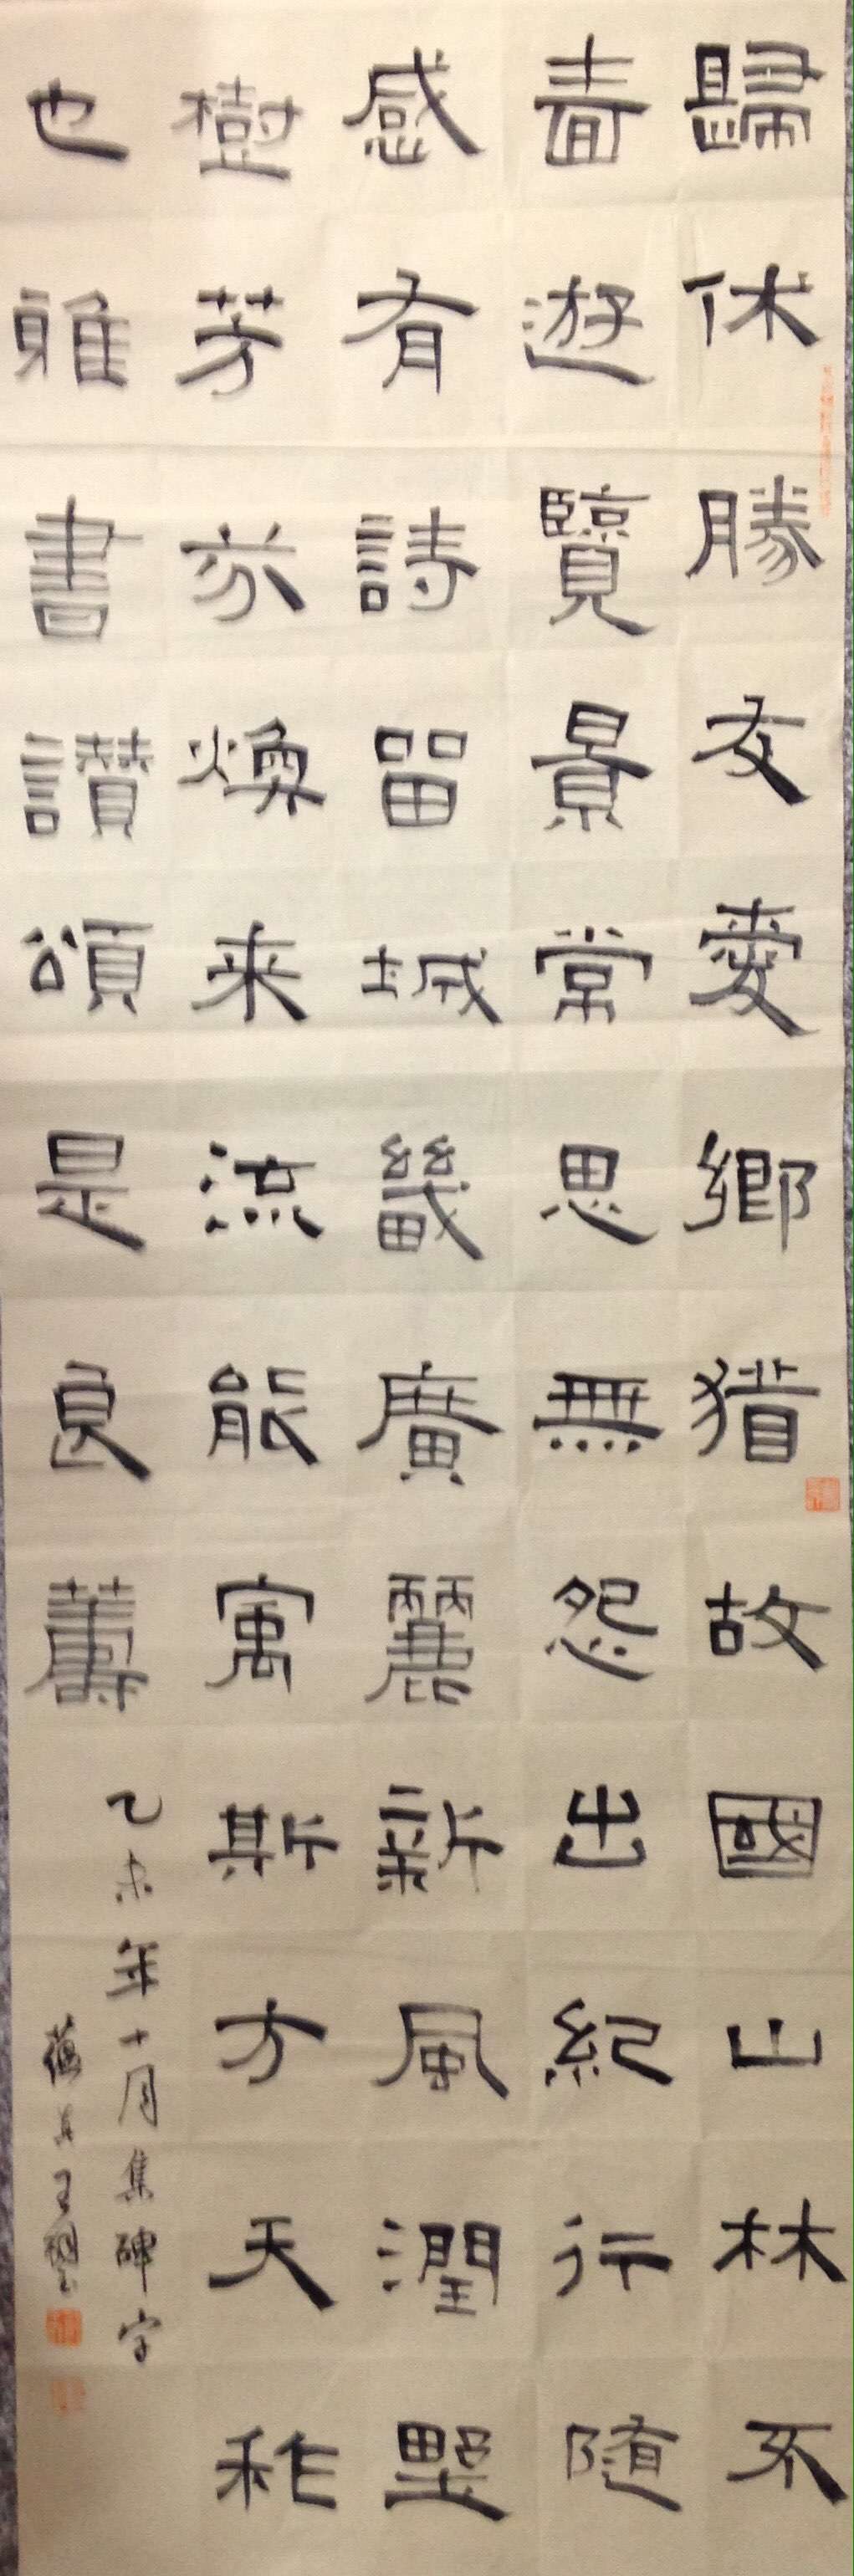 歸休勝友愛鄉猶故國山林不
嗇遊覽景常思無怨出紀行隨
感有詩留城畿廣麗新風潤野
樹芳煥来流能寓斯方天祚
也雅書讚頌是良籌
乙未年十月集碑字
王